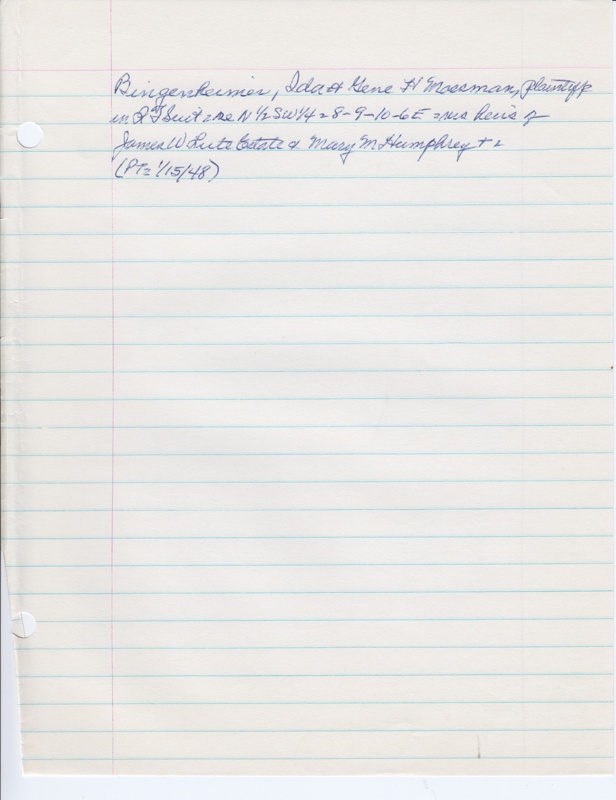 Bingenheimer, Ida & Gene H Mossman, plaintiffs
in QT Suit = re N 1/2 SW 1/4 = 8-9-10-6E = vs heirs of
James W Lute Estate & Mary M Humphrey +
(PT = 1/15/48)